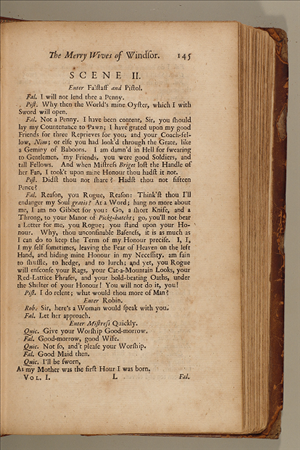 The Merry Wives of Windsor. 145
SCENE II.
Enter Falstaff and Pistol.
Fal. I will not lend thee a Penny.
Pist. Why then the World's mine Oyster, which I with
Sword will open.
Fal. Not a Penny. I have been content, Sir, you should
lay my Countenance to Pawn; I have grated upon my good
Friends for three Reprieves for you, and your Couch-fel-
low, Nim; or else you had look'd through the Grate, like
a Geminy of Baboons. I am damn'd in Hell for swearing
to Gentlemen, my Friends, you were good Soldiers, and
tall Fellows. And when Mistress Briget lost the Handle of
her Fan, I took't upon mine Honour thou hadst it not.
Pist. Didst thou not share? Hadst thou not fifteen
Pence?
Fal. Reason, you Rogue, Reason: Think'st thou I'll
endanger my Soul gratis? At a Word; hang no more about
me, I am no Gibbet for you: Go, a short Knife, and a
Throng, to your Manor of Pickt-hatch; go, you'll not bear
a Letter for me, you Rogue; you stand upon your Ho-
nour. Why, thou unconfinable Baseness, it is as much as
I can do to keep the Term of my Honour precise. I, I,
I my self sometimes, leaving the Fear of Heaven on the left
Hand, and hiding mine Honour in my Necessity, am fain
to shuffle, to hedge, and to lurch; and yet, you Rogue
will ensconse your Rags, your Cat-a-Mountain Looks, your
Red-Lattice Phrases, and your bold-bearing Oaths, under
the Shelter of your Honour! You will not do it, you!
Pist. I do relent; what would thou more of Man?
Enter Robin.
Rob. Sir, here's a Woman would speak with you.
Fal. Let her approach.
Enter Mistress Quickly.
Quic. Give your Worship Good-morrow.
Fal. Good-morrow, good Wife.
Quic. Not so, and't please your Worship.
Fal. Good Maid then.
Quic. I'll be sworn,
As my Mother was the first Hour I was born.
VOL. I. L Fal.